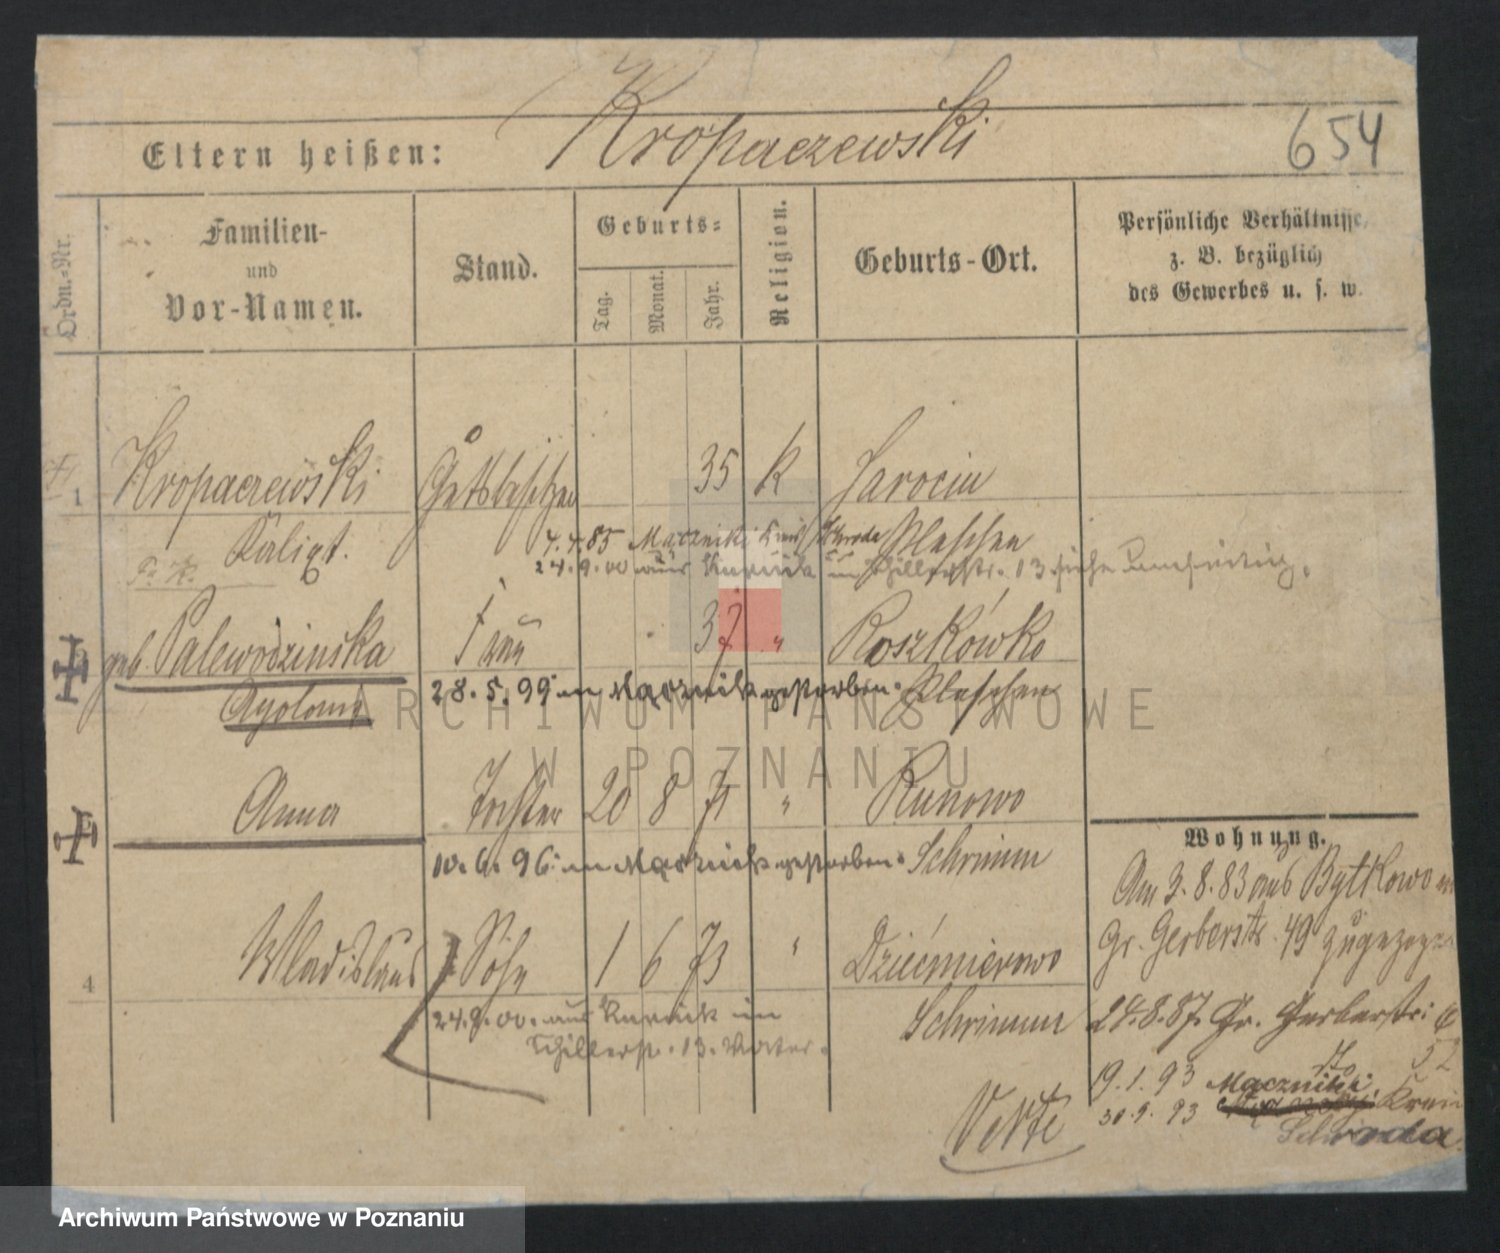 Kropaczewski
Eltern heißen:
654
Ordn.-Nr.
Familien-
und
Vor-Namen.
Stand.
Geburts-
Tag.
Monat.
Jahr.
Religion.
Geburts-Ort.
Persönliche Verhältnisse,
z. B. bezüglich
des Gewerbes u. s. w.
1 Kropaczewski Gutsbesitzer 35 K Jarocin
Kalixt. Pleschen
4.4.85 Mączniki Kreis Schroda
24.9.00 aus Schillerstr. 13 siehe umseitig.
geb. Palewodzinska Frau 37 " Roszkówko
Apolonia Pleschen
28.5.99 in gestorben.
Anna Tochter 20 8 71 " Runowo
10.6.96 in gestorben. Schrimm
4 Wladislaus Sohn 1 6 73 " Dziećmierowo
Schrimm
24.9.00. aus im
Schillerst. 13. Vater.
Wohnung.
Am 3.8.83 aus Bytkowo
Gr. Gerberstr. 49 zugezogen
24.8.87. Gr. Gerberstr: 6
52
19.1.93 Mączniki
30.9.93 Kreis
Schroda
Verte
ARCHIWUM PAŃSTWOWE
W POZNANIU
Archiwum Państwowe w Poznaniu